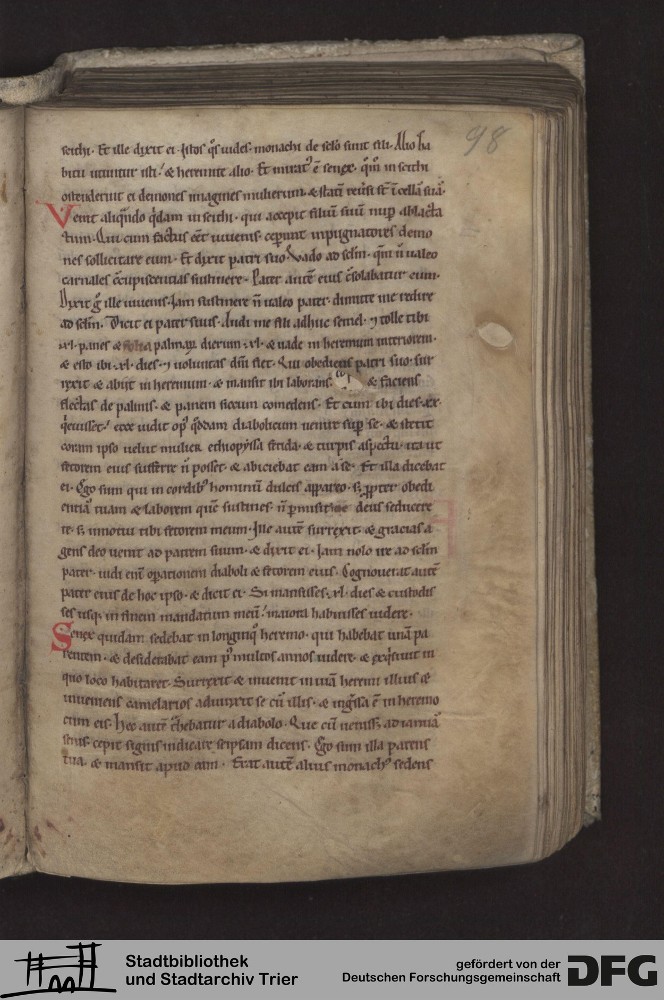 98
scithi. Et ille dixit ei. Istos q̄s vides. monachi de sc̄lo sunt fili. Alio ha
bitu utuntur isti. & heremite alio. Et mirat᷒ ē senex. qm̄ in scithi
ostenderunt ei demones imagines mulierum. & statī reūsi st̄ ī cellā suā.
Venit aliqn̄do qdam in scithi. qui accepit filiū suū nup ablacta
tum. Qui cum factus eēt iuvenis. ceperunt inpugnatores demo
nes sollicitare eum. Et dixit patri suo. Vado ad sclm̄. qm̄ n̄ valeo
carnales c̄cupiscentias sustinere. Pater autē eius c̄solabatur eum.
Dixit g̊ ille iuvenis. Iam sustinere n̄ valeo pater. dimitte me redire
ad sclm̄. Dicit ei pater eius. Audi me fili adhuc semel. ⁊ tolle tibi
.xl. panes & folia palmaꝝ dierum .xl. & vade in heremum interiorem.
& esto ibi .xl. dies. ⁊ voluntas dn̄i fiet. Qui obediens patri suo. sur
rexit & abiit in heremum. & mansit ibi laborans. & faciens
flectas de palmis. & panem siccum comedens. Et cum ibi dies .xx.
q̇evisset. ecce vidit op᷒ qoddam diabolicum venire sup se. & stetit
coram ipso velut mulier ethiopyssa fetida. & turpis aspectu. ita ut
fetorem eius sufferre n̄ posset. & abiciebat eam a se. Et illa dicebat
ei. Ego sum qui in cordib᷒ hominū dulcis appareo. s; ꝓpter obedi
entiā tuam & laborem quē sustines. n̄ ꝑmisit me deus seducere
te. s; innotui tibi fetorem meum. Ille autē surrexit. & gracias a
gens deo venit ad patrem suum. & dixit ei. Iam nolo ire ad sclm̄
pater. vidi enī opationem diaboli & fetorem eius. Cognoverat autē
pater eius de hoc ipso. & dicit ei. Si mansisses .xl. dies & custodis
ses usq; in finem mandatum meū. maiora habuisses videre.
Senex quidam sedebat in longinq̊ heremo. qui habebat unā pa
rentem. & desiderabat eam p᷒ multos annos videre. & exq̇sivit in
quo loco habitaret. Surrexit & invenit in viā heremi illius. &
inveniens camelarios adiunxit se cū illis. & īgressa ē in heremo
cum eis. Hec autē t̄hebatur a diabolo. Que cū venisset ad ianuā
senis. cepit signis indicare seipsam dicens. Ego sum illa parens
tua. & mansit apud eum. Erat autē alius monach᷒ sedens
Stadtbibliothek
und Stadtarchiv Trier
gefördert von der
Deutschen Forschungsgemeinschaft
DFG